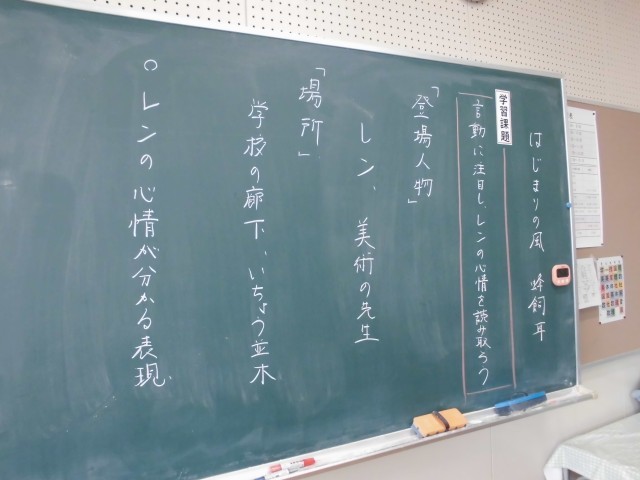 はじまりの風 蜂飼耳
学習課題
言動に注目し、レンの心情を読み取ろう
「登場人物」
レン、美術の先生
「場所」
学校の廊下、いちょう並木
○レンの心情が分かる表現